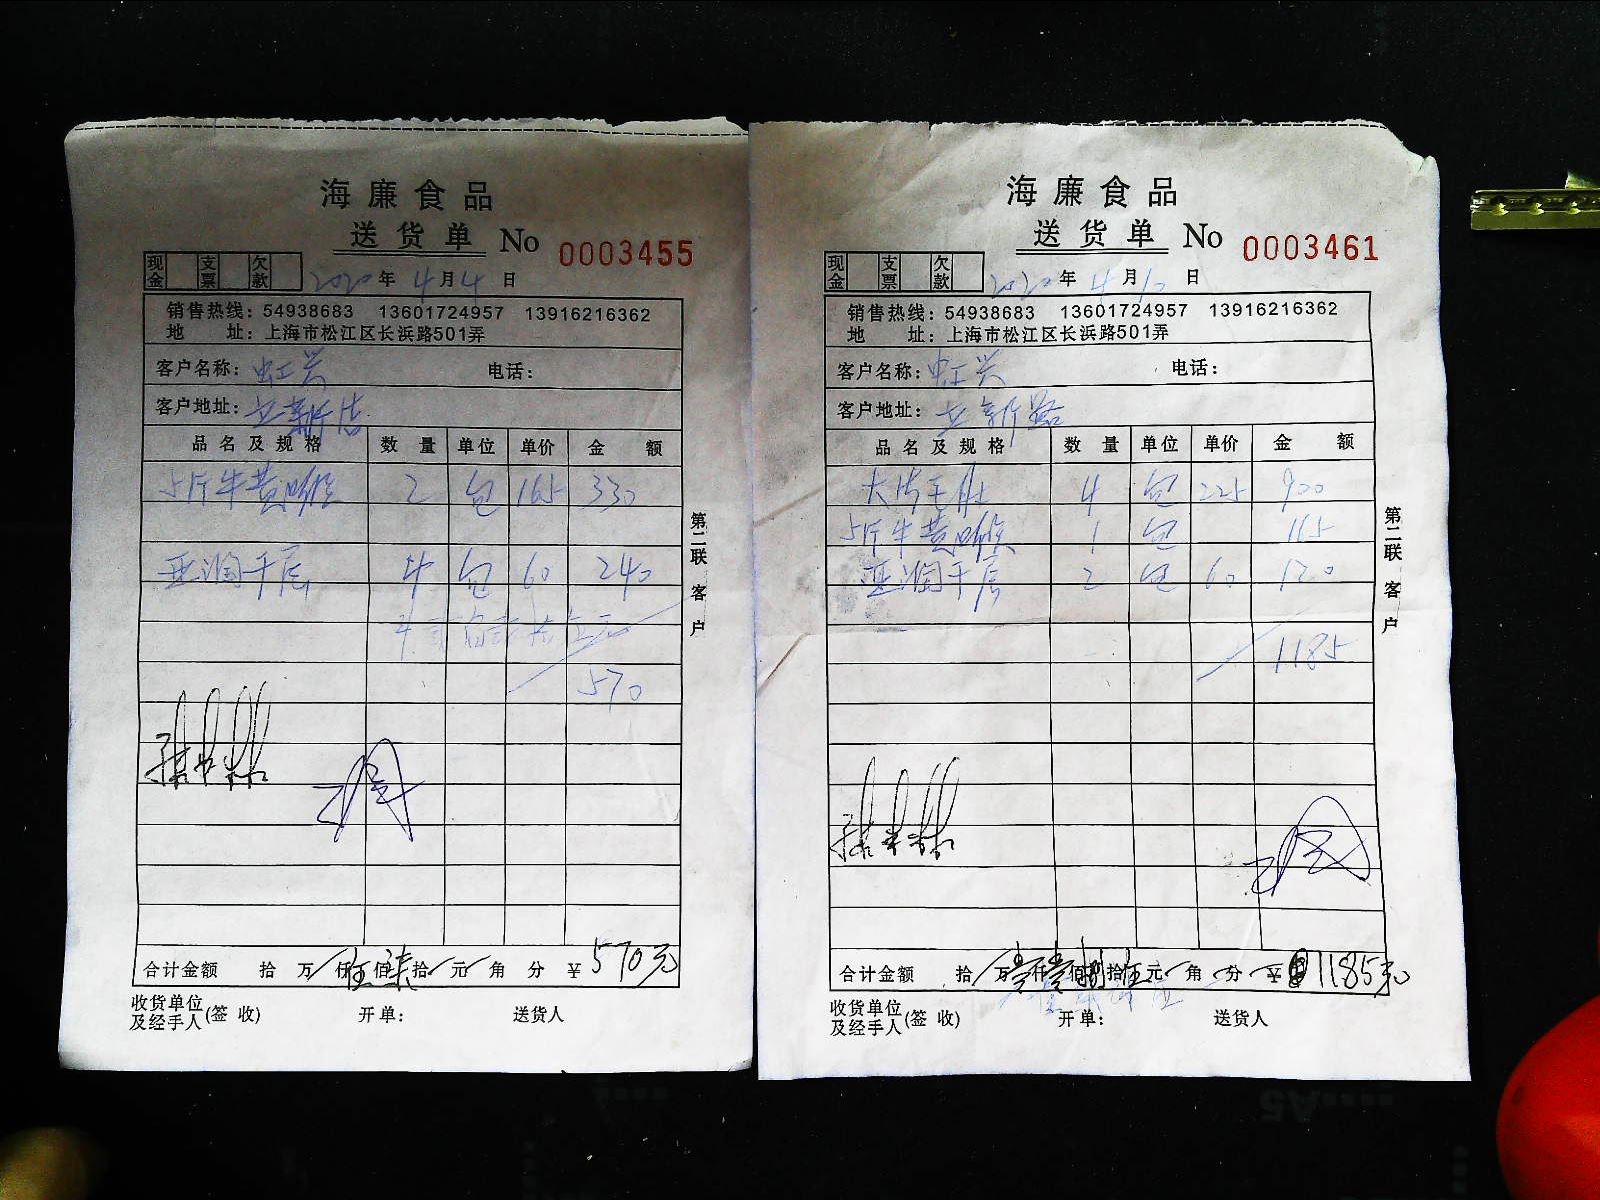 海廉食品
送货单 No 0003455
现金 支票 欠款 2020年4月4日
销售热线: 54938683 13601724957 13916216362
地 址: 上海市松江区长浜路501弄
客户名称: 虹兴 电话:
客户地址: 立新店
品名及规格 数量 单位 单价 金额
5斤牛黄喉 2 包 165 330
千层 4 包 60 240
570
第二联 客户
合计金额 拾 万 仟 伍 佰 柒 拾 元 角 分 ¥ 570元
收货单位及经手人(签收) 开单: 送货人
海廉食品
送货单 No 0003461
现金 支票 欠款 2020年4月10日
销售热线: 54938683 13601724957 13916216362
地 址: 上海市松江区长浜路501弄
客户名称: 虹兴 电话:
客户地址: 立新路
品名及规格 数量 单位 单价 金额
4 包 225 900
5斤牛黄喉 1 包 165
千层 2 包 60 120
1185
第二联 客户
合计金额 拾 万 壹 仟 壹 佰 捌 拾 伍 元 角 分 ¥ 1185元
收货单位及经手人(签收) 开单: 送货人